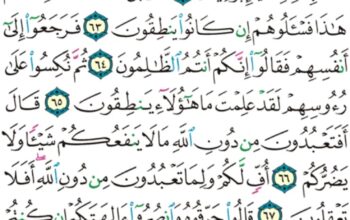 هَٰذَا فَسْـَٔلُوهُمْ إِن كَانُوا۟ يَنطِقُونَ ٦٣ فَرَجَعُوٓا۟ إِلَىٰٓ
أَنفُسِهِمْ فَقَالُوٓا۟ إِنَّكُمْ أَنتُمُ ٱلظَّـٰلِمُونَ ٦٤ ثُمَّ نُكِسُوا۟ عَلَىٰ
رُءُوسِهِمْ لَقَدْ عَلِمْتَ مَا هَـٰٓؤُلَآءِ يَنطِقُونَ ٦٥ قَالَ
أَفَتَعْبُدُونَ مِن دُونِ ٱللَّهِ مَا لَا يَنفَعُكُمْ شَيْـًٔا وَلَا
يَضُرُّكُمْ ٦٦ أُفٍّ لَّكُمْ وَلِمَا تَعْبُدُونَ مِن دُونِ ٱللَّهِ أَفَلَا
تَعْقِلُونَ ٦٧ قَالُوا۟ حَرِّقُوهُ وَٱنصُرُوٓا۟ ءَالِهَتَكُمْ إِن كُنتُمْ